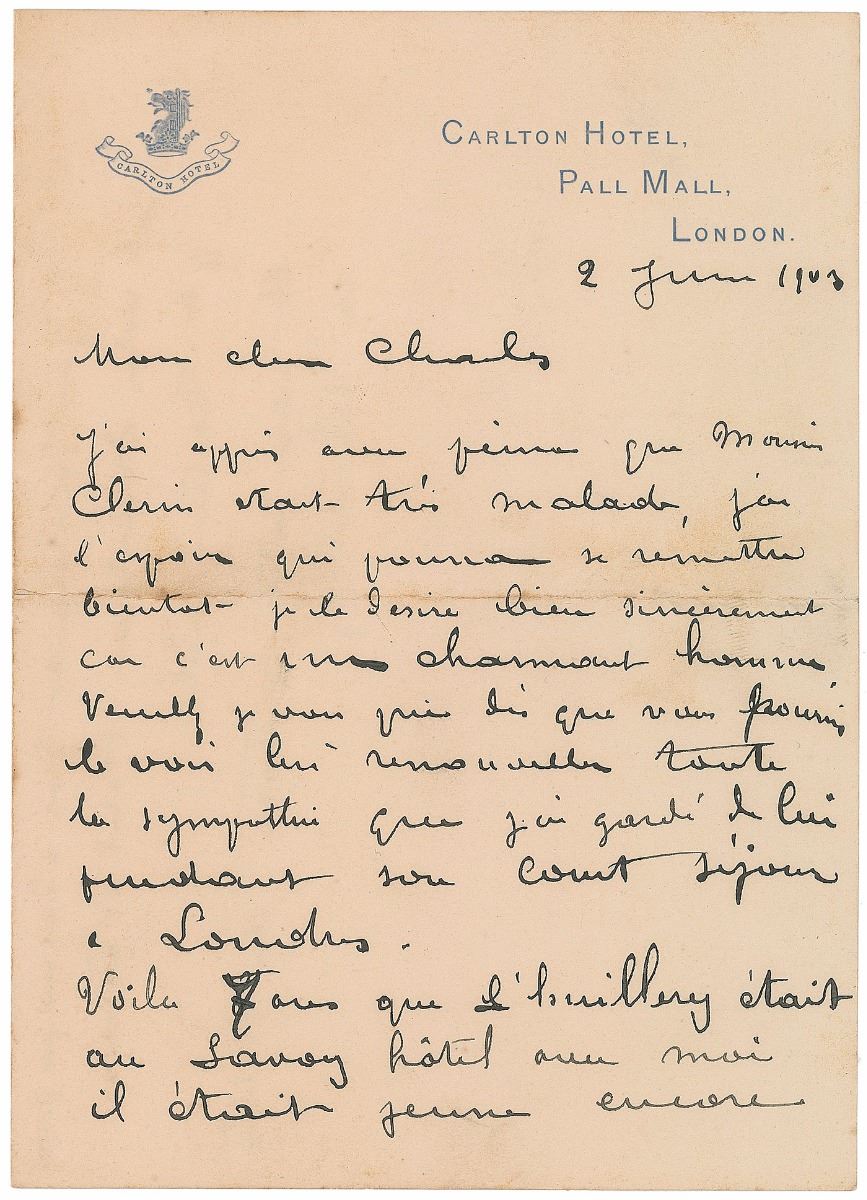 CARLTON HOTEL
CARLTON HOTEL,
PALL MALL,
LONDON.
2 Juin 1903
Mon cher Charles
J'ai appris avec peine que Monsieur
était très malade, j'ai
l'espoir qui pourra se remettre
bientot je le désire bien sincèrement
car c'est un charmant homme
Veuillez je vous prie dès que vous pourrez
le voir lui renouveller toute
la sympathie que j'ai gardé de lui
pendant son court séjour
a Londres.
Voila 7 ans que L'huillery était
au Savoy hôtel avec moi
il était jeune encore